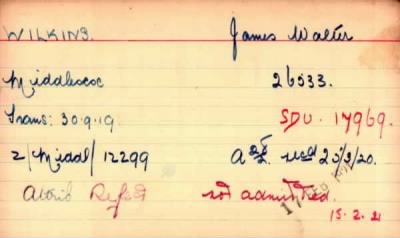 WILKINS. James Walter
Middlesex 26533.
Trans: 30.9.19. SDU. 17969.
2/Middl/12299 recd 25/3/20.
Attrib Refsd not admitted.
15.2.21